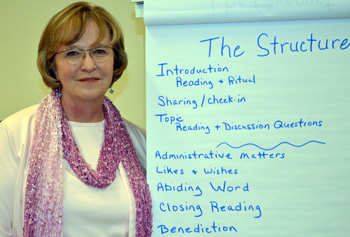 The Structure
Introduction
Reading + Ritual
Sharing/check-in
Topic
Reading + Discussion Questions
Administrative Matters
Likes + Wishes
Abiding Word
Closing Reading
Benediction